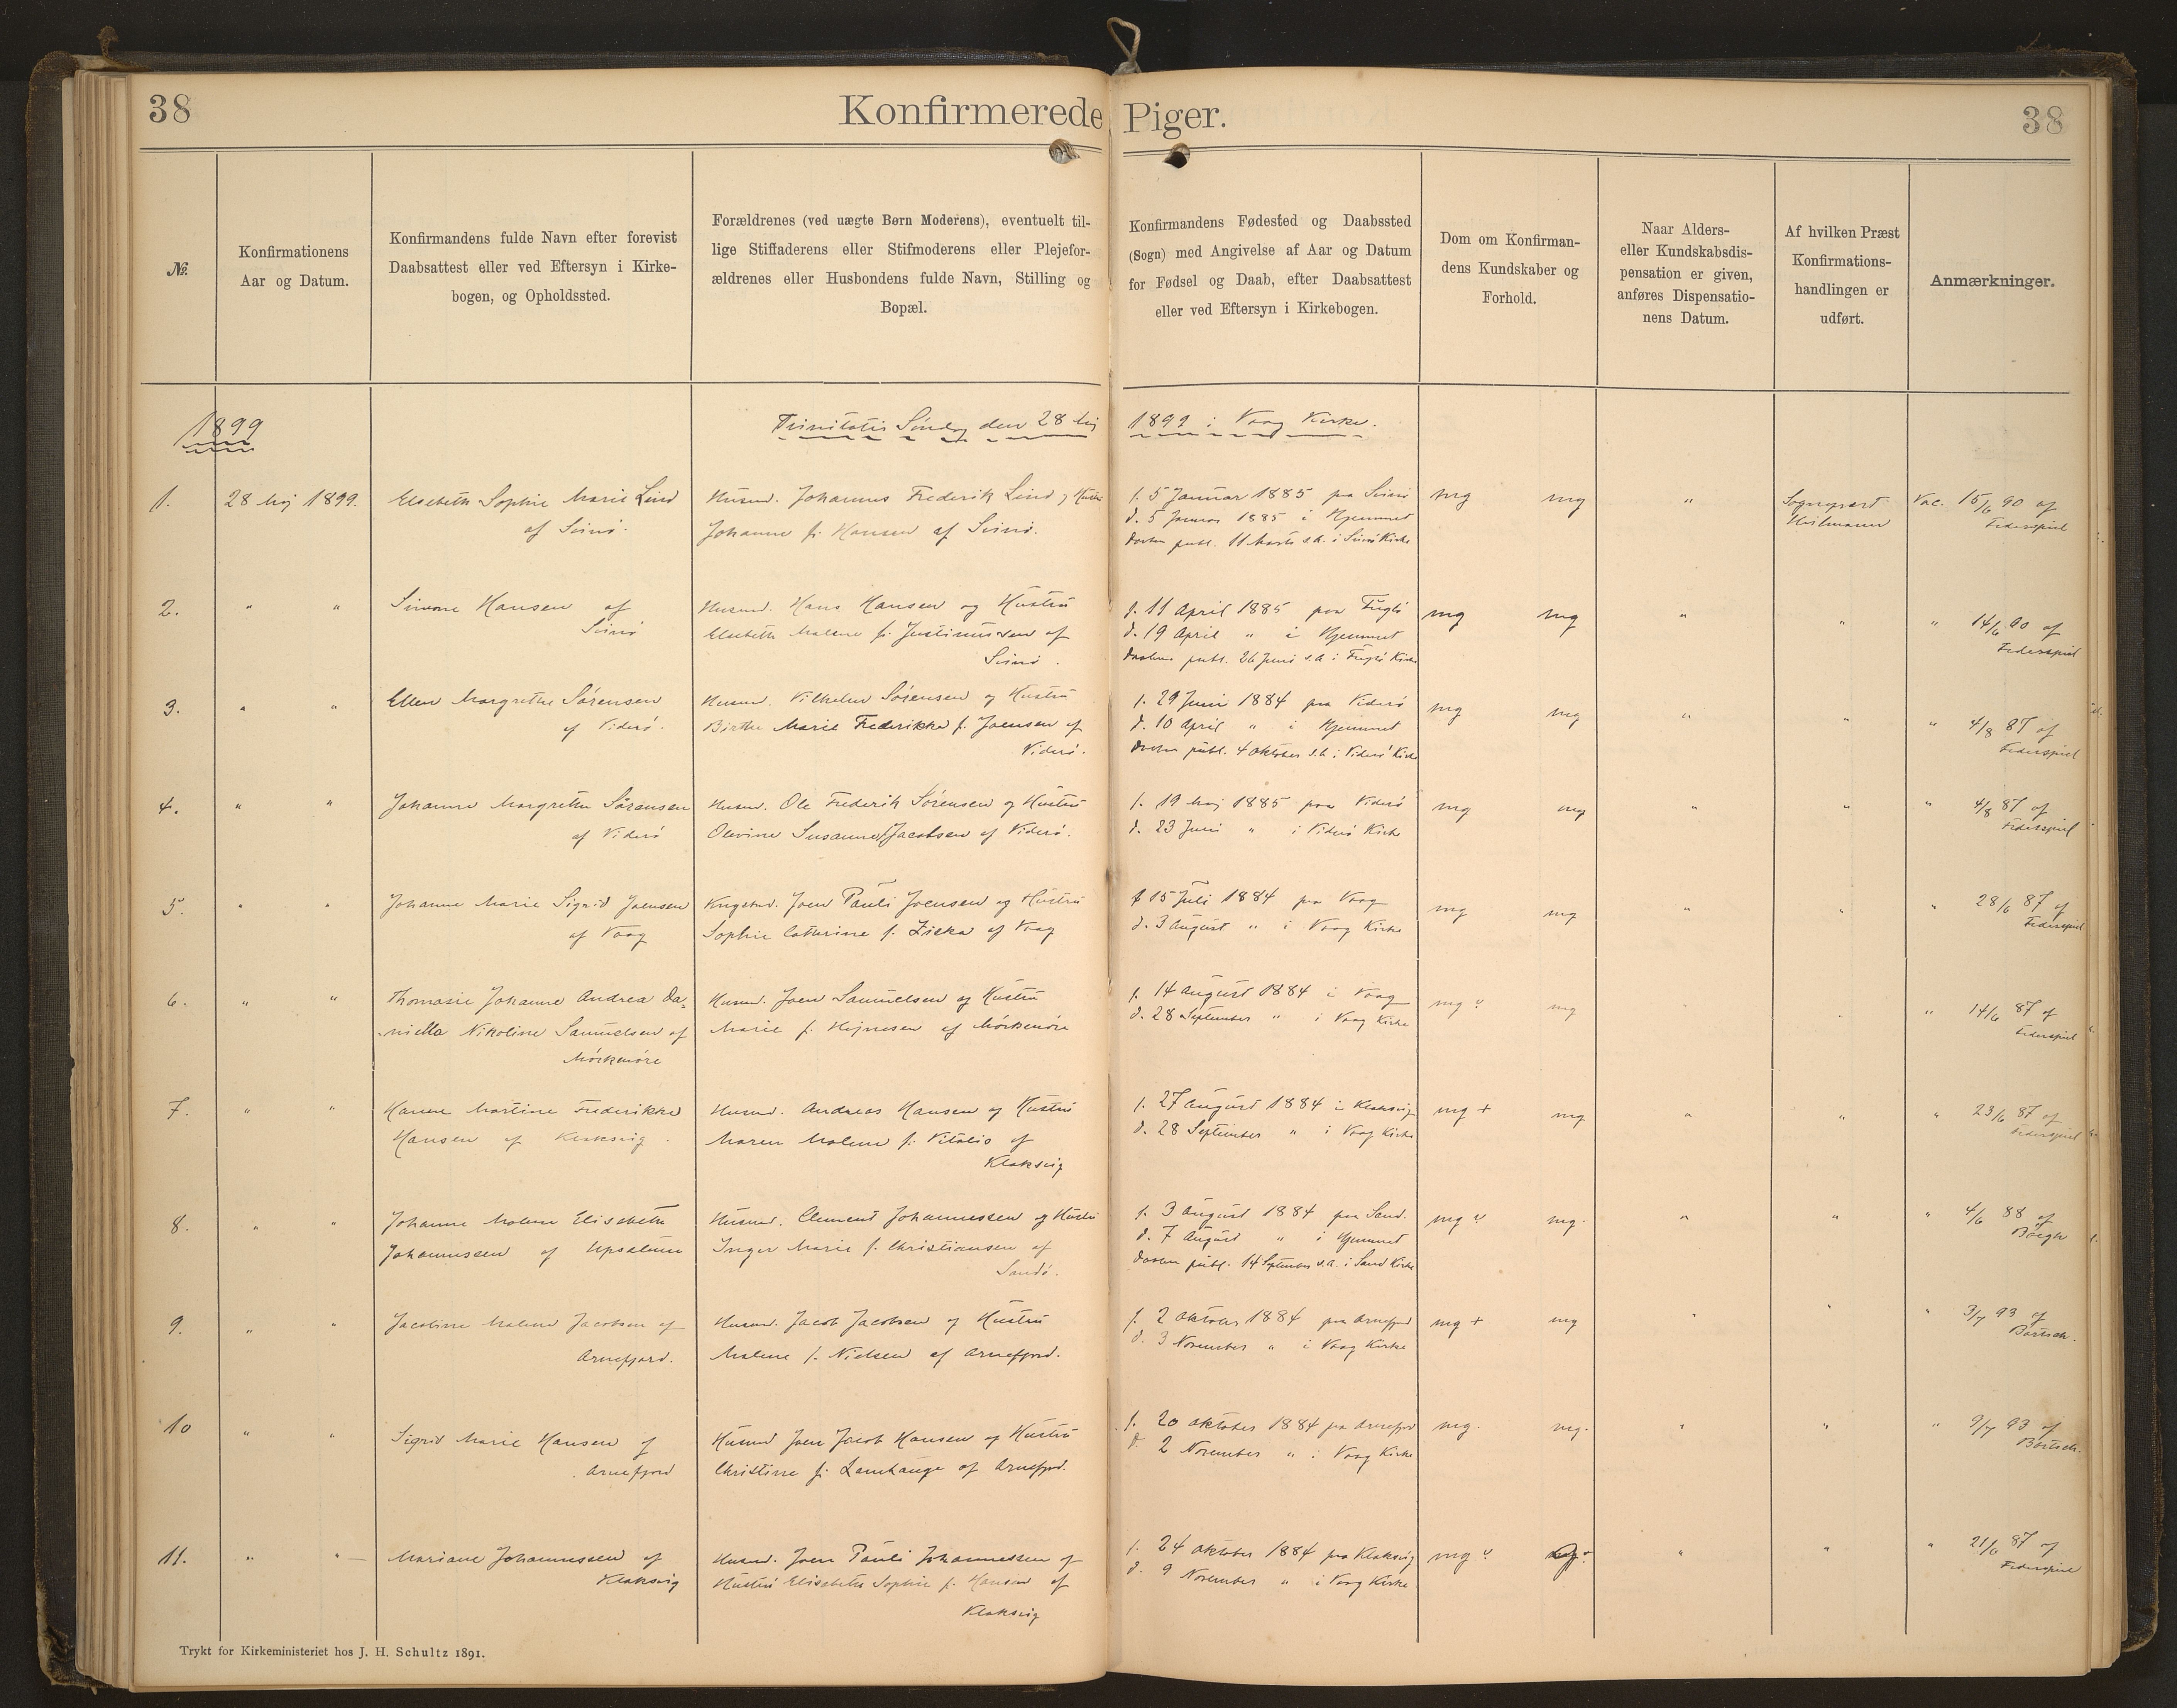 38
Konfirmerede Piger.
38
№.
Konfirmationens
Aar og Datum.
Konfirmandens fulde Navn efter forevist
Daabsattest eller ved Eftersyn i Kirke-
bogen, og Opholdssted.
Forældrenes (ved uægte Børn Moderens), eventuelt til-
lige Stiffaderens eller Stifmoderens eller Plejefor-
ældrenes eller Husbondens fulde Navn, Stilling og
Bopæl.
Konfirmandens Fødested og Daabssted
(Sogn) med Angivelse af Aar og Datum
for Fødsel og Daab, efter Daabsattest
eller ved Eftersyn i Kirkebogen.
Dom om Konfirman-
dens Kundskaber og
Forhold.
Naar Alders-
eller Kundskabsdis-
pensation er given,
anføres Dispensatio-
nens Datum.
Af hvilken Præst
Konfirmations-
handlingen er
udført.
Anmærkninger.
1899
Trinitatis Søndag den 28 Maj 1899 i Vaag Kirke.
1.
28 Maj 1899.
Elsebeth Sophie Marie Lind
af Svinø.
Husmd. Johannes Frederik Lind og Hustru
Johanne f. Hansen af Svinø.
f. 5 Januar 1885 paa Svinø
d. 5 Januar 1885 i Hjemmet
Daaben publ. 11 Marts s.A. i Svinø Kirke
mg mg
"
Sognepræst
Heilmann
Vac. 15/6 90 af
Federspiel
2.
" "
Simone Hansen af
Svinø
Husmd. Hans Hansen og Hustru
Elsebeth Malene f. Justinussen af
Svinø.
f. 11 April 1885 paa Fuglø
d. 19 April " i Hjemmet
Daaben publ. 26 Juni s.A. i Fuglø Kirke
mg mg
" " " 14/6 90 af
Federspiel
3.
" "
Ellen Margrethe Sørensen
af Viderø.
Husmd. Vilhelm Sørensen og Hustru
Birthe Marie Frederikke f. Joensen af
Viderø.
f. 29 Juni 1884 paa Viderø
d. 10 April " i Hjemmet
Daaben publ. 4 Oktober s.A. i Viderø Kirke
mg mg
" " " 4/8 87 af
Federspiel
4.
" "
Johanne Margrethe Sørensen
af Viderø
Husmd. Ole Frederik Sørensen og Hustru
Olevine Susanne f. Jacobsen af Viderø.
f. 19 Maj 1885 paa Viderø
d. 23 Juni " i Viderø Kirke
mg mg
" " " 4/8 87 af
Federspiel
5.
" "
Johanne Marie Sigrid Joensen
af Vaag
Kngsbd. Joen Pauli Joensen og Hustru
Sophie Cathrine f. Ziska af Vaag
f 15 Juli 1884 paa Vaag
d. 3 August " i Vaag Kirke
mg mg
" " " 28/6 87 af
Federspiel
6.
" "
Thomasie Johanne Andrea Da-
niella Nikoline Samuelsen af
Mørkenøre
Husmd. Joen Samuelsen og Hustru
Marie f. Hejnesen af Mørkenøre
f. 14 August 1884 i Vaag
d. 28 September " i Vaag Kirke
mg mg
" 14/6 87 af
Federspiel
7.
" "
Hanne Martine Frederikke
Hansen af Klaksvig.
Husmd. Andreas Hansen og Hustru
Maren Malene f. Vitalis af
Klaksvig
f. 27 August 1884 i Klaksvig
d. 28 September " i Vaag Kirke
mg + mg
" " " 23/6 87 af
Federspiel
8.
" "
Johanne Malene Elisabeth
Johannessen af Upsalum
Husmd. Clement Johannessen og Hustru
Inger Marie f. Christiansen af
Sandø.
f. 3 August 1884 paa Sand.
d. 7 August " i Hjemmet
Daaben publ. 14 September s.A. i Sand Kirke
mg mg.
" " " 4/6 88 af
9.
" "
Jacobine Malene Jacobsen af
Arnefjord.
Husmd. Jacob Jacobsen og Hustru
Malene f. Nielsen af Arnefjord.
f. 2 Oktober 1884 paa Arnefjord
d. 3 November " i Vaag Kirke
mg + mg
" " " 3/7 93 af
Bärtsch.
10
" "
Sigrid Marie Hansen af
Arnefjord
Husmd Joen Jacob Hansen og Hustru
Christine f. Lamhauge af Arnefjord.
f. 20 Oktober 1884 paa Arnefjord
d. 2 November " i Vaag Kirke
mg. mg.
" " " 9/7 93 af
Bärtsch.
11.
" "
Mariane Johannessen af
Klaksvig
Husmd. Joen Pauli Johannessen og
Hustru Elisabeth Sophie f. Hansen af
Klaksvig
f. 24 Oktober 1884 paa Klaksvig
d. 9 November " i Vaag Kirke
mg
" " " 21/6 87 af
Federspiel
Trykt for Kirkeministeriet hos J. H. Schultz 1891.